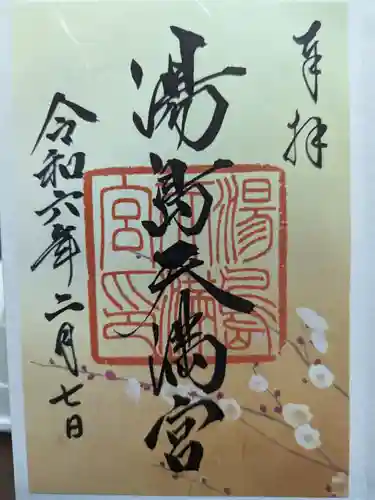 奉拝
湯島天満宮
湯島天満宮印
令和六年二月七日